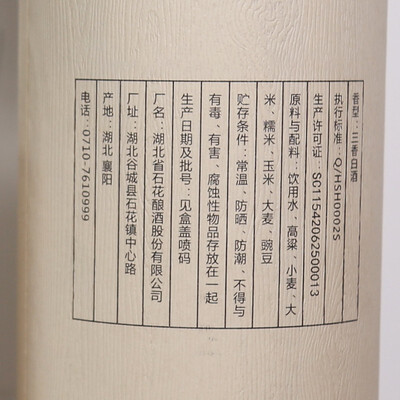 香型：三香白酒
执行标准：Q/HSH0002S
生产许可证：SC11542062500013
原料与配料：饮用水、高粱、小麦、大
米、糯米、玉米、大麦、豌豆
贮存条件：常温、防晒、防潮、不得与
有毒、有害、腐蚀性物品存放在一起
生产日期及批号：见盒盖喷码
厂名：湖北省石花酿酒股份有限公司
厂址：湖北谷城县石花镇中心路
产地：湖北 襄阳
电话：0710-7610999